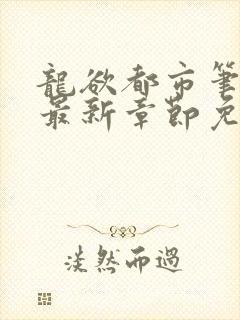 龍欲都市筆
最新章節免
淡然而過